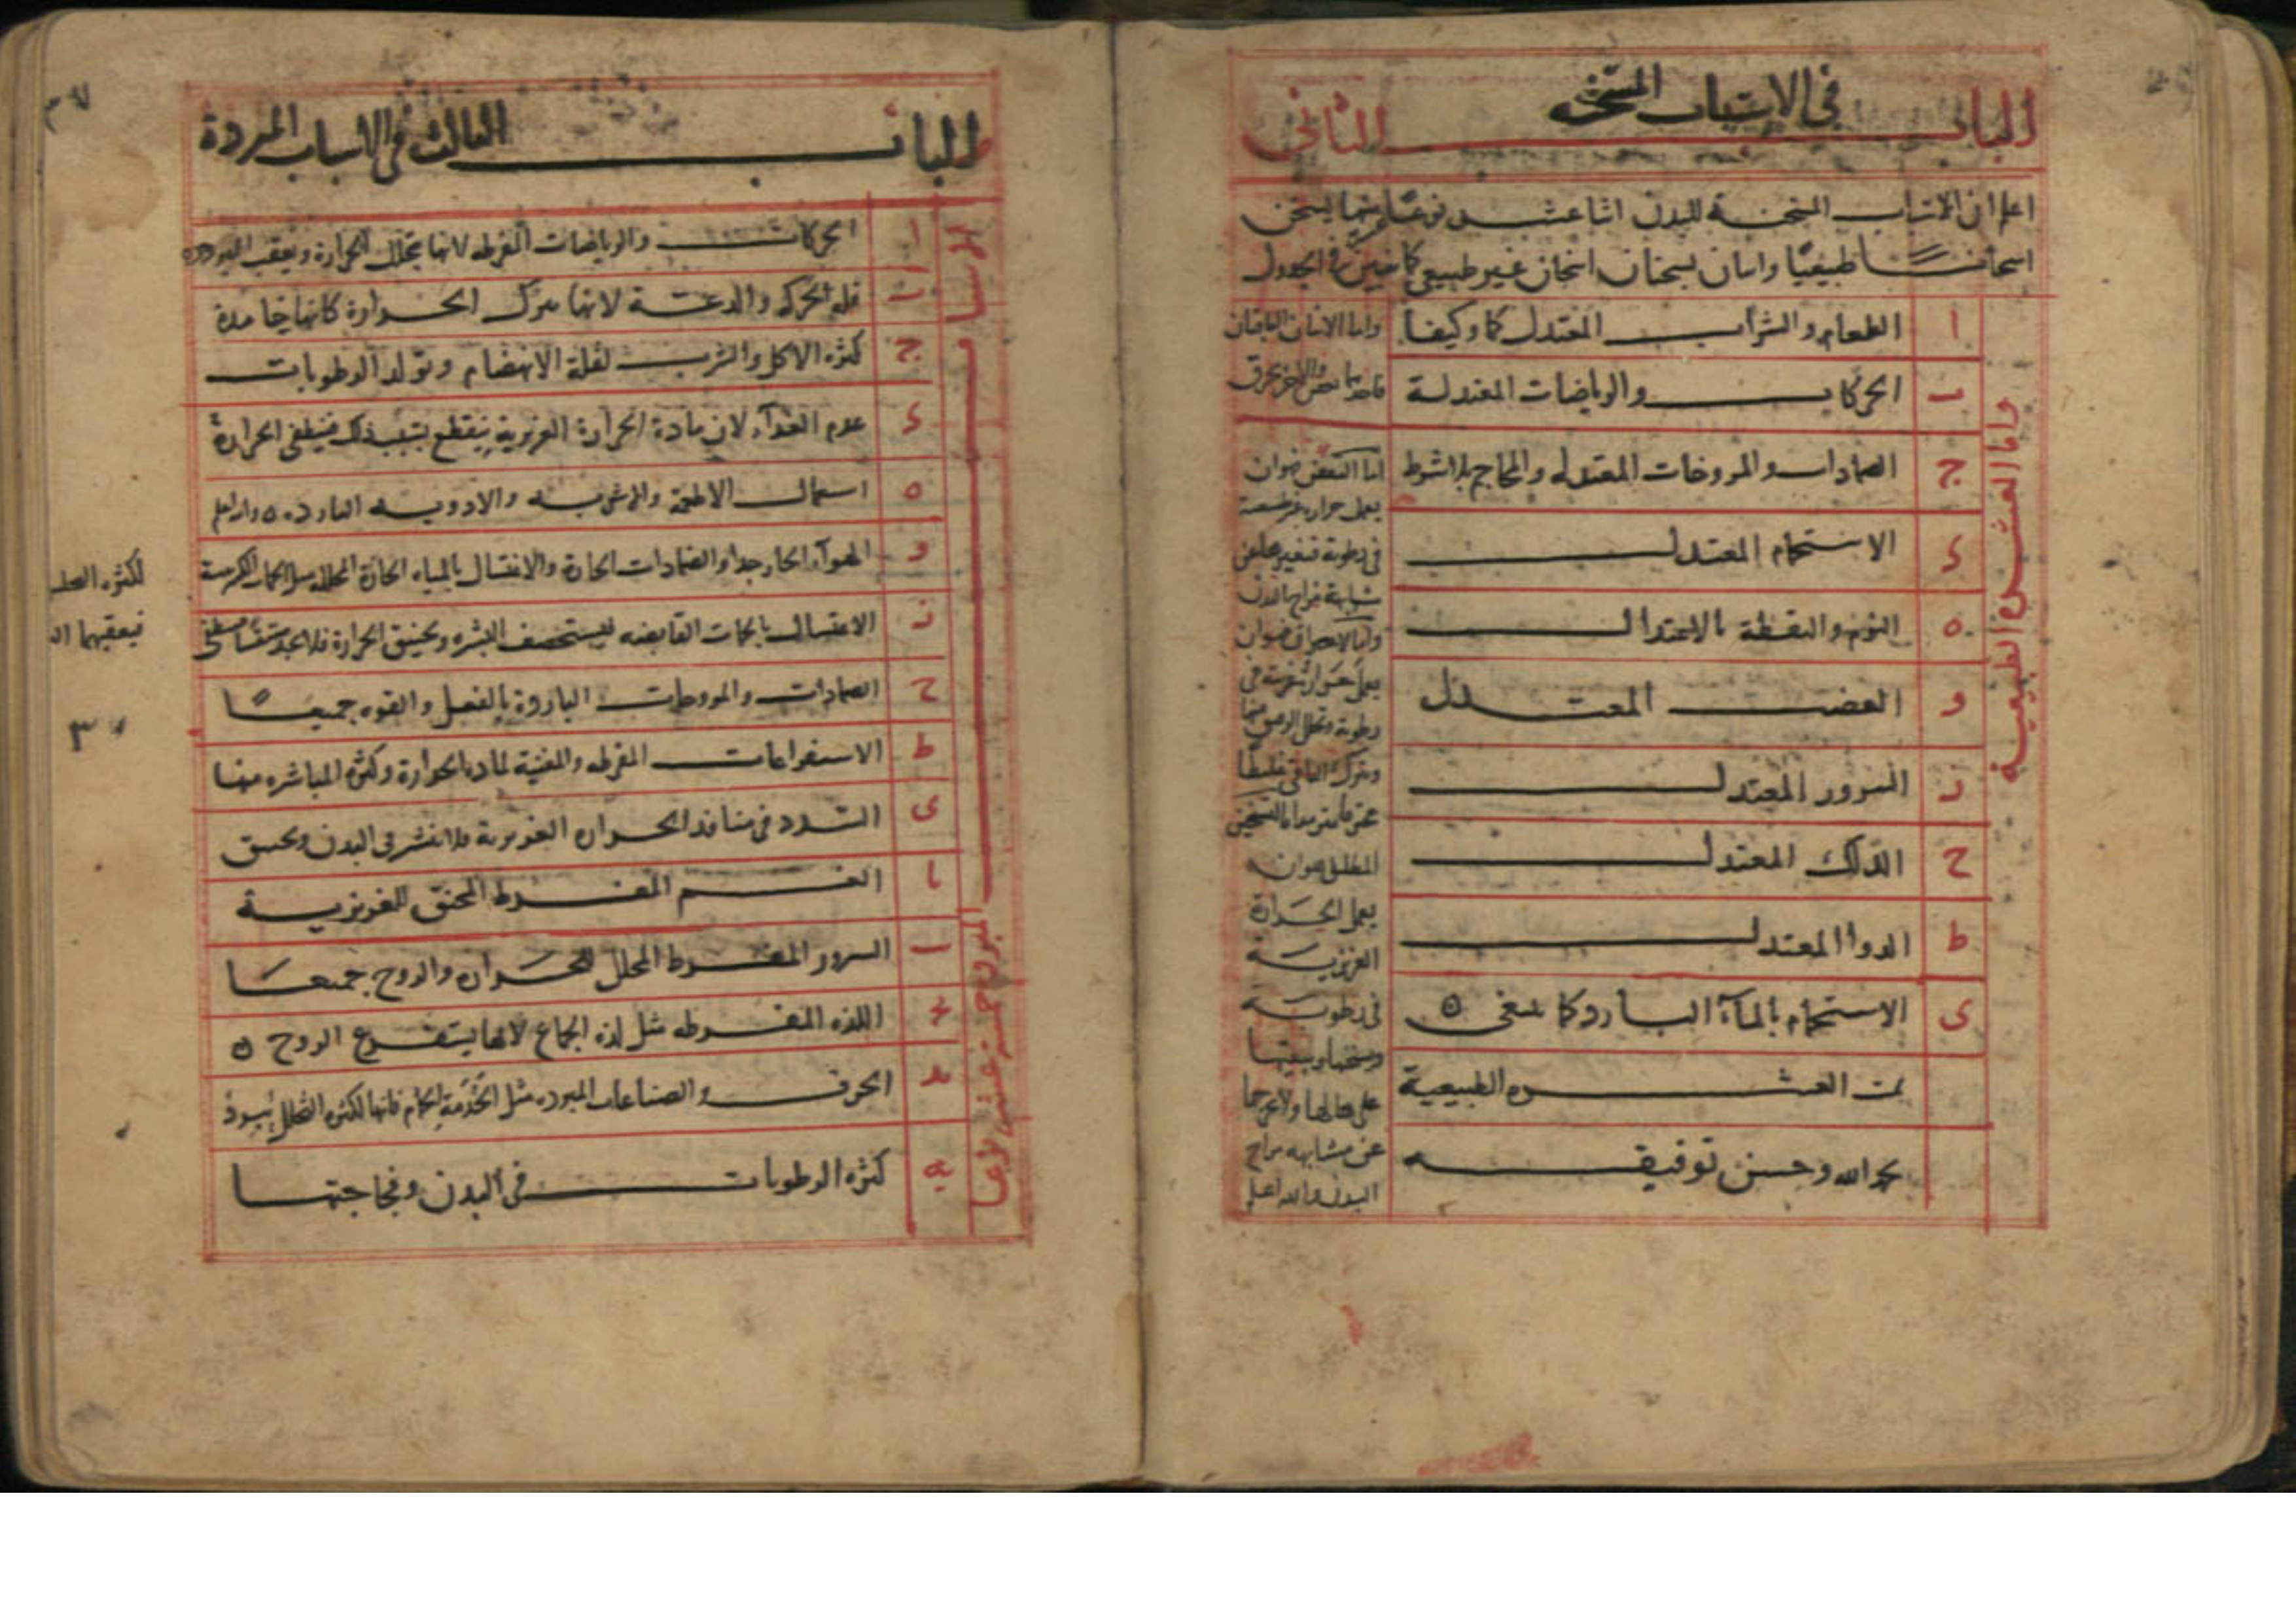 الباب الثاني
في الاسباب المسخنة
اعلم ان الاسباب المسخنة للبدن اثنا عشر نوعا منها يسخن
اسخانا طبيعيا واثنان يسخنان اسخان غير طبيعي كما في الجدول
واما العشرة الطبيعية
ا الطعام والشراب المعتدل كما وكيفا
ب الحركات والرياضات المعتدلة
ج الضمادات والمروخات المعتدلة والمحاجم بلا شرط
د الاستحمام المعتدل
ه النوم واليقظة بالاعتدال
و الغضب المعتدل
ز السرور المعتدل
ح الدلك المعتدل
ط الدوا المعتدل
ى الاستحمام بالمآء البارد كما ينبغي
تمت العشره الطبيعية
بحمد الله وحسن توفيقه
واما الاثنان الباقيان
فاحدهما يعفن والاخر يحرق
اما التعفن فهو ان
يعمل حرارة غير طبيعية
في رطوبة فتغيرها عن
مشابهة مزاج البدن
واما الاحراق فهو ان
يعمل حرارة غريبة في
رطوبة وتحلل الرقيق منها
وتترك الباقي غليظا
محترقا واما التسخين
المطلق فهو ان
يعمل الحرارة
الغريزية
في رطوبة
وتسخنها ويبقيها
على حالها ولا يخرجها
عن مشابهه مزاج
البدن والله اعلم
الباب الثالث في الاسباب المبردة
الاسباب المبردة خمسة عشر نوعا
ا الحركات والرياضات المفرطه لانها تحلل الحرارة ويعقب البرودة
ب قلة الحركه والدعة لانها تترك الحرارة كانها خامدة
ج كثره الاكل والشرب لقلة الانهضام وتولد الرطوبات
د عدم الغذآء لان مادة الحرارة الغريزية ينقطع بسبب ذلك فينطفى الحرارة
ه استعمال الاطعمة والاشربه والادويه البارده والله اعلم
و الهوآء الحار جدا والضمادات الحارة والاغتسال بالمياه الحارة المحللة
ز الاغتسال بالحمات القابضه ليستحصف البشره ويختنق الحرارة فلا تجد متنفسا
ح الضمادات والمروخات الباردة بالفعل والقوه جميعا
ط الاستفراغات المفرطه والمفنية لمادة الحرارة وكثره المباشره منها
ى السدد في منافذ الحراره الغريزية فلا تنتشر في البدن ويختنق
يا الغم المفرط المخنق للغريزية
يب السرور المفرط المحلل للحراره والروح جميعا
يج اللذه المفرطه مثل لذه الجماع لانها يستفرغ الروح
يد الحرف والصناعات المبرده مثل الخدمة الحمام فانها لكثره التحلل يبرد
يه كثره الرطوبات في البدن وفجاجتها
لكثره التحلل
فيعقبهما